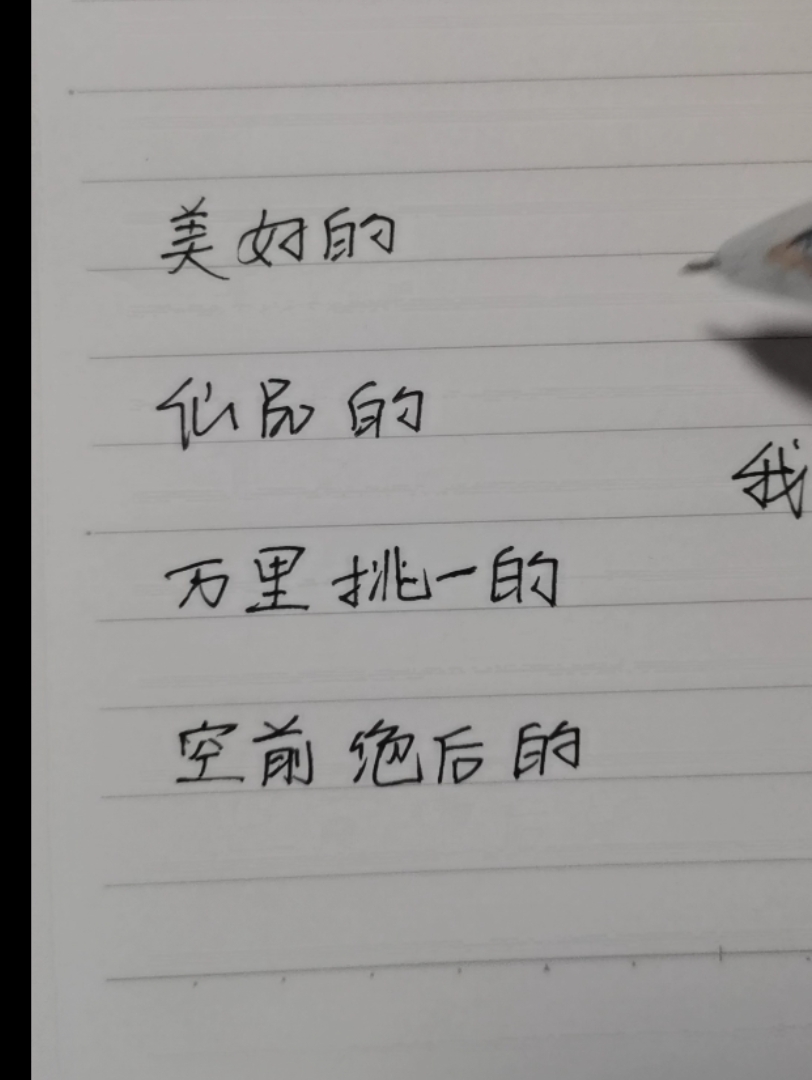 美好的
仙品的
我
万里挑一的
空前绝后的